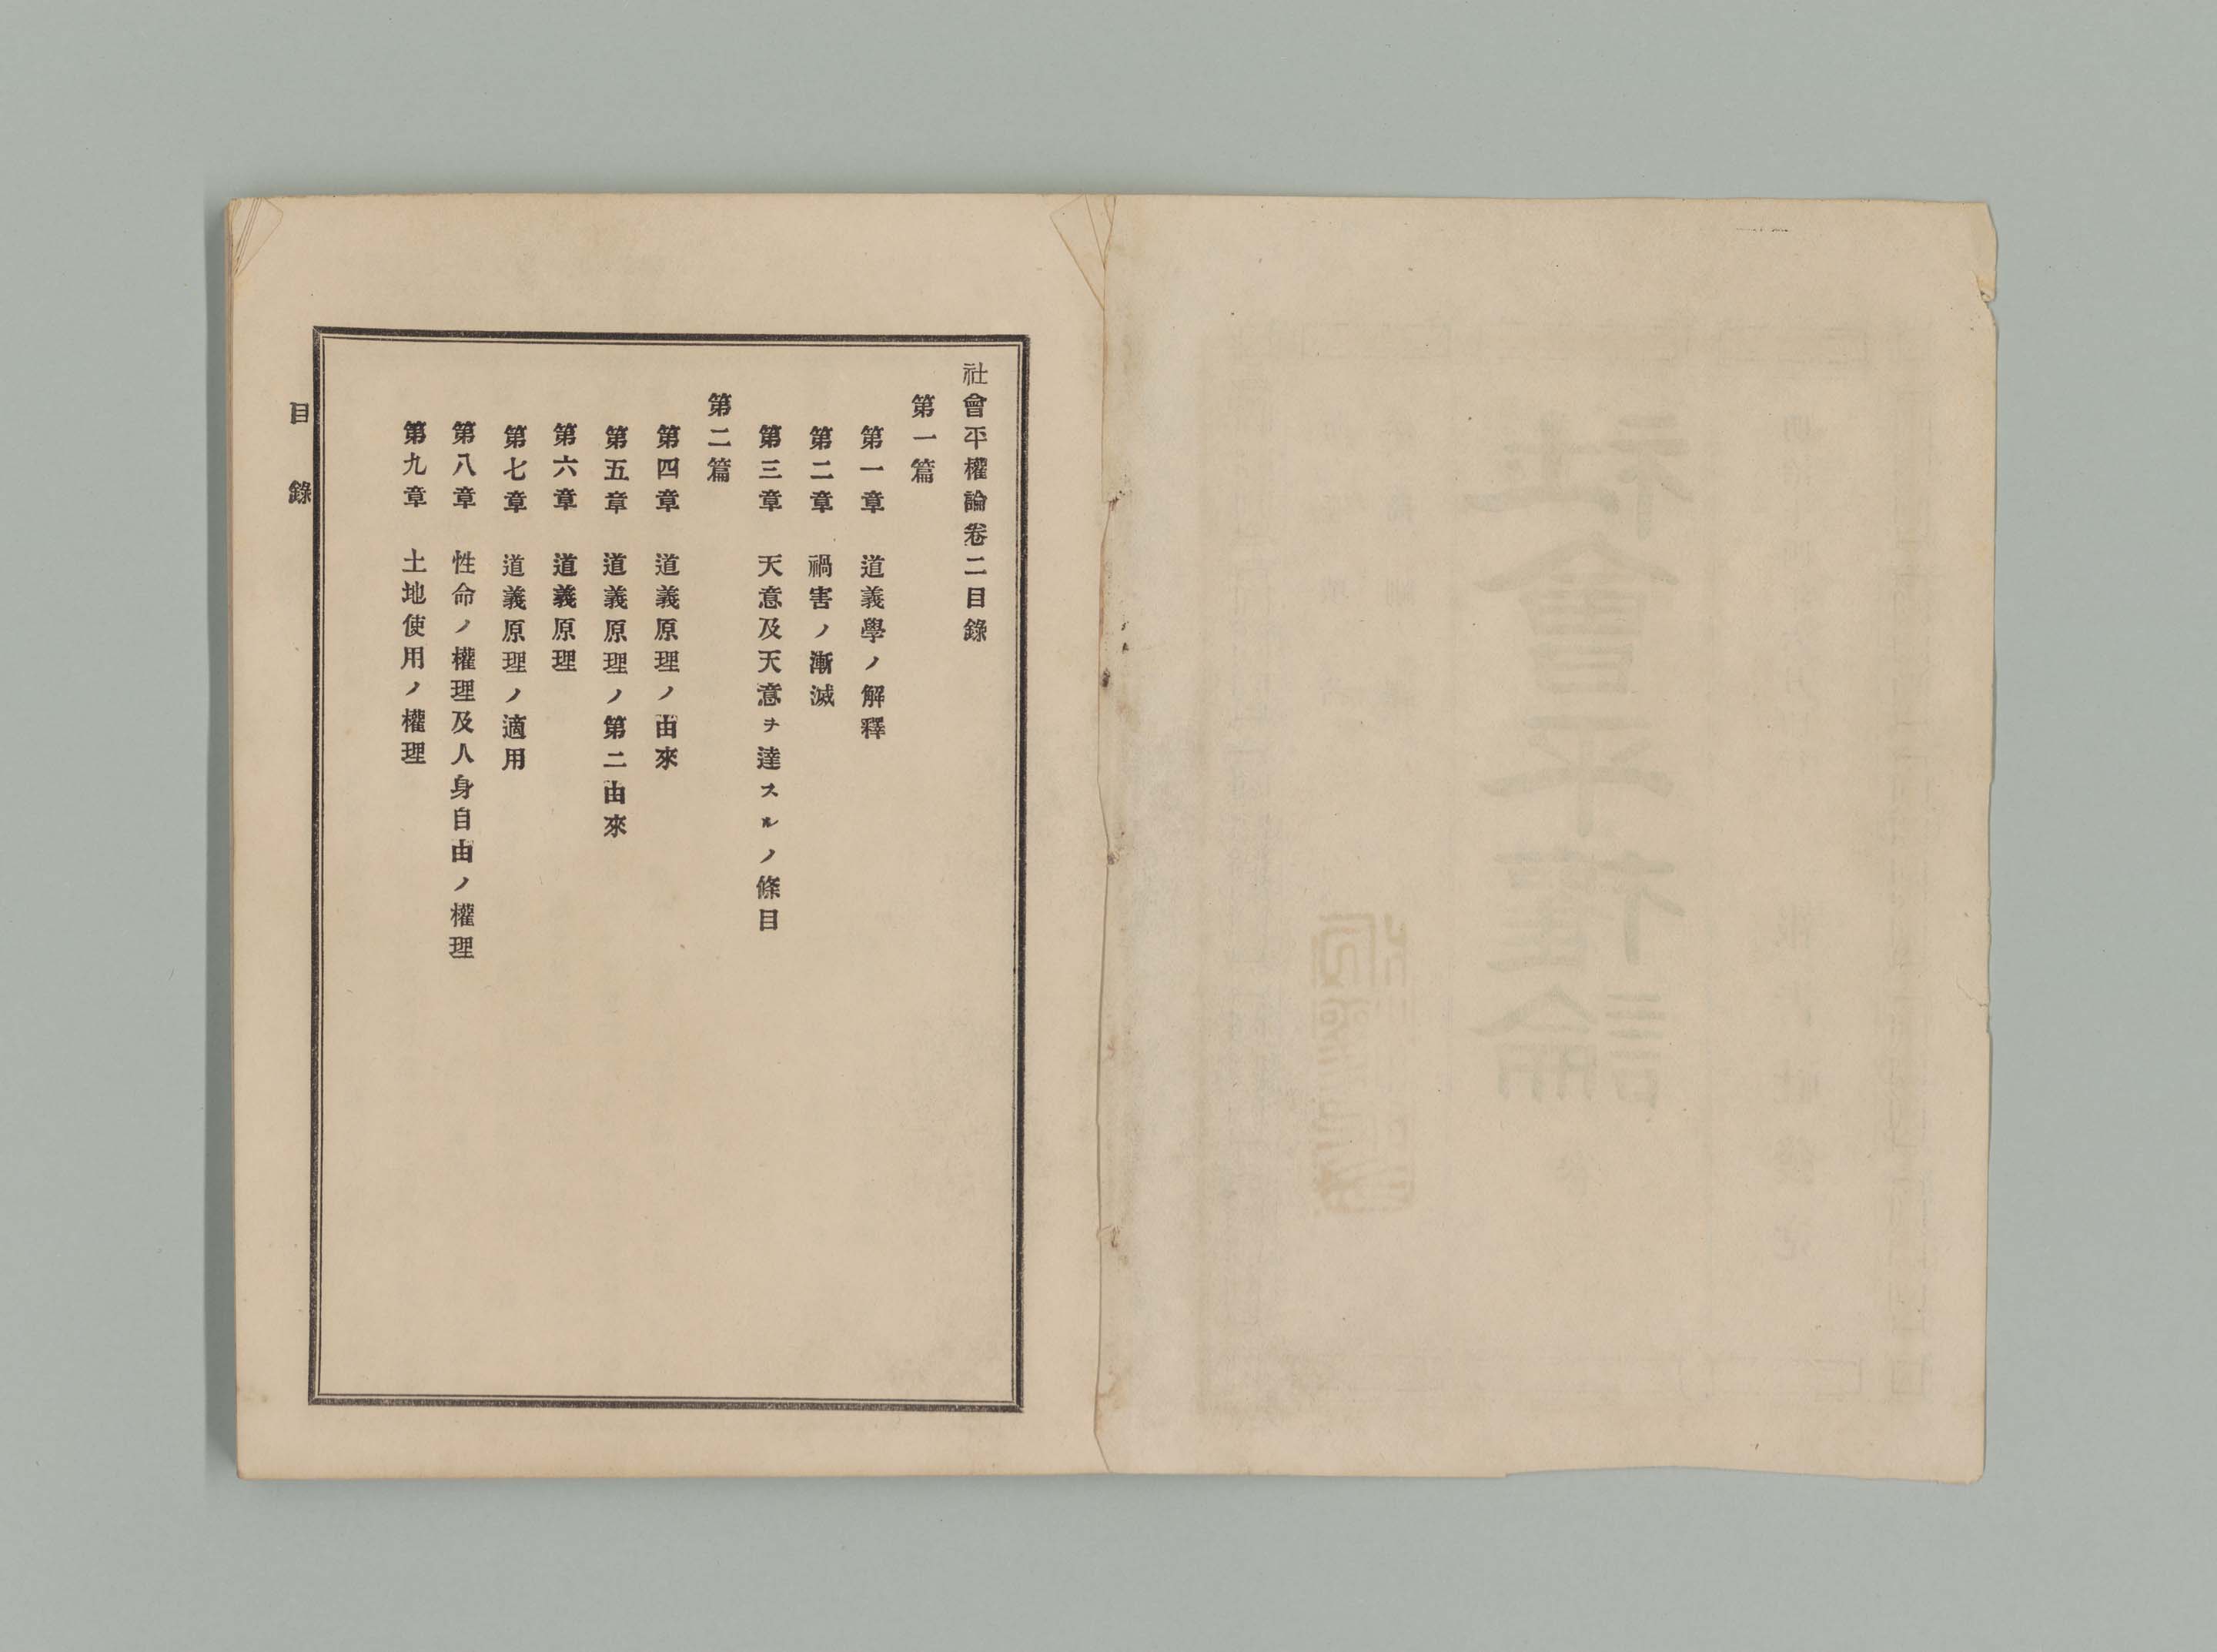 社會平權論卷二目錄
第一篇
第一章 道義學ノ解釋
第二章 禍害ノ漸滅
第三章 天意及天意ヲ達スルノ條目
第二篇
第四章 道義原理ノ由來
第五章 道義原理ノ第二由來
第六章 道義原理
第七章 道義原理ノ適用
第八章 性命ノ權理及人身自由ノ權理
第九章 土地使用ノ權理
目錄